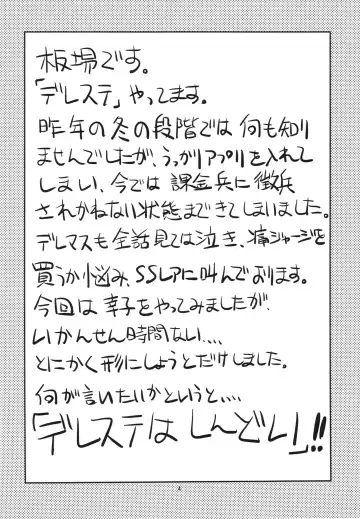 板場です。
「デレステ」やってます。
昨年の冬の段階では何も知り
ませんでしたが、うっかりアプリを入れて
しまい、今では課金兵に徴兵
されかねない状態まできてしまいました。
デレマスも全話見ては泣き、痛ジャージを
買うか悩み、SSレアに叫んでおります。
今回は幸子をやってみましたが、
いかんせん時間ない....
とにかく形にしようとだけしました。
何が言いたいかというと....
「デレステは しんどい」!!
4